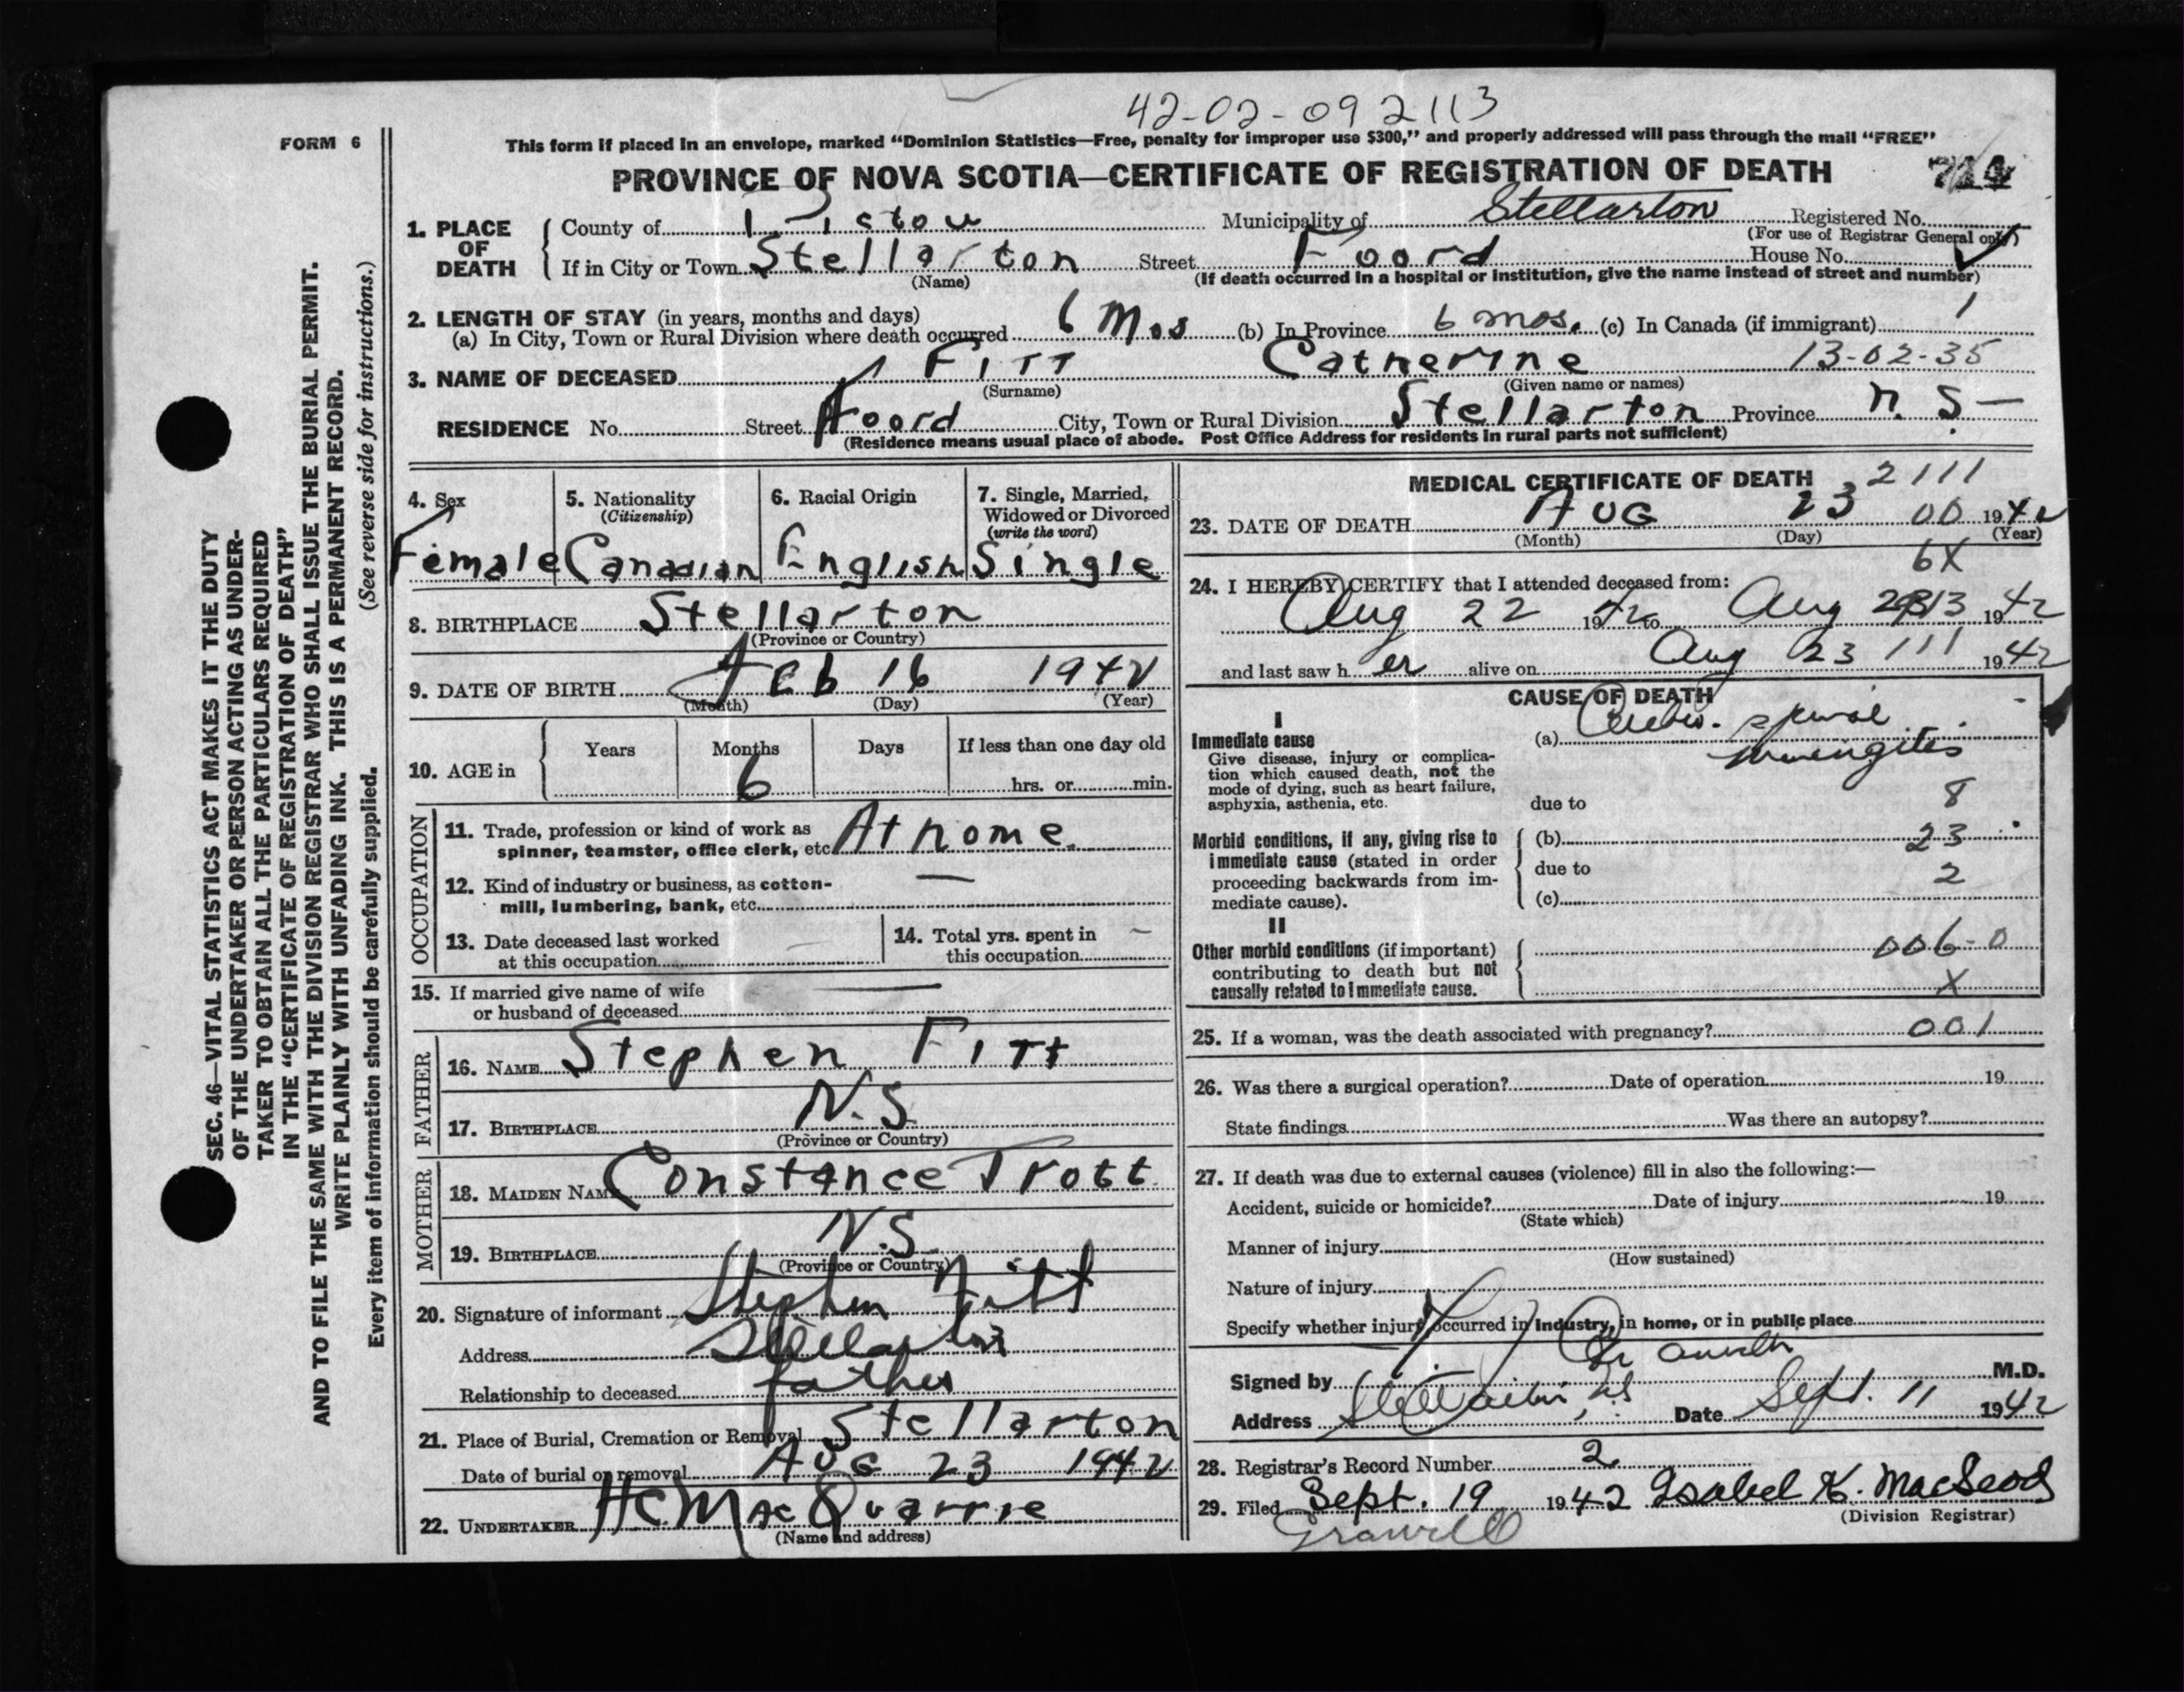 42-02-09 2113
FORM 6
This form if placed in an envelope, marked "Dominion Statistics—Free, penalty for improper use $300," and properly addressed will pass through the mail "FREE"
PROVINCE OF NOVA SCOTIA—CERTIFICATE OF REGISTRATION OF DEATH
1. PLACE OF DEATH
County of Pictou Municipality of Stellarton Registered No.
(For use of Registrar General only)
If in City or Town Stellarton Street Foord House No.
(Name) (If death occurred in a hospital or institution, give the name instead of street and number)
2. LENGTH OF STAY (in years, months and days)
(a) In City, Town or Rural Division where death occurred 6 Mos (b) In Province 6 mos. (c) In Canada (if immigrant)
3. NAME OF DECEASED Fitt Catherine 13-02-35
(Surname) (Given name or names)
RESIDENCE No. Street Foord City, Town or Rural Division Stellarton Province N. S—
(Residence means usual place of abode. Post Office Address for residents in rural parts not sufficient)
SEC. 46—VITAL STATISTICS ACT MAKES IT THE DUTY
OF THE UNDERTAKER OR PERSON ACTING AS UNDER-
TAKER TO OBTAIN ALL THE PARTICULARS REQUIRED
IN THE "CERTIFICATE OF REGISTRATION OF DEATH"
AND TO FILE THE SAME WITH THE DIVISION REGISTRAR WHO SHALL ISSUE THE BURIAL PERMIT.
WRITE PLAINLY WITH UNFADING INK. THIS IS A PERMANENT RECORD.
Every item of information should be carefully supplied. (See reverse side for instructions.)
4. Sex
Female
5. Nationality
(Citizenship)
Canadian
6. Racial Origin
English
7. Single, Married,
Widowed or Divorced
(write the word)
Single
8. BIRTHPLACE Stellarton
(Province or Country)
9. DATE OF BIRTH Feb 16 1942
(Month) (Day) (Year)
10. AGE in
Years Months Days If less than one day old
6 hrs. or min.
OCCUPATION
11. Trade, profession or kind of work as
spinner, teamster, office clerk, etc. At home.
12. Kind of industry or business, as cotton- —
mill, lumbering, bank, etc.
13. Date deceased last worked —
at this occupation
14. Total yrs. spent in —
this occupation
15. If married give name of wife —
or husband of deceased
FATHER
16. NAME Stephen Fitt
17. BIRTHPLACE N.S.
(Province or Country)
MOTHER
18. MAIDEN NAME Constance Trott
19. BIRTHPLACE N.S.
(Province or Country)
20. Signature of informant Stephen Fitt
Address Stellarton
Relationship to deceased father
21. Place of Burial, Cremation or Removal Stellarton
Date of burial or removal Aug 23 1942
22. UNDERTAKER H.C. MacQuarrie
(Name and address)
MEDICAL CERTIFICATE OF DEATH 2111
23. DATE OF DEATH Aug 23 00 1942
(Month) (Day) (Year)
6X
24. I HEREBY CERTIFY that I attended deceased from:
Aug 22 1942 to Aug 23 1942
and last saw her alive on Aug 23 111 1942
CAUSE OF DEATH
I
Immediate cause
Give disease, injury or complica-
tion which caused death, not the
mode of dying, such as heart failure,
asphyxia, asthenia, etc.
(a) Cerebro. spinal
meningitis
due to 8
Morbid conditions, if any, giving rise to
immediate cause (stated in order
proceeding backwards from im-
mediate cause).
(b) 23
due to 2
(c)
II
Other morbid conditions (if important)
contributing to death but not
causally related to immediate cause.
006-0
X
25. If a woman, was the death associated with pregnancy? 001
26. Was there a surgical operation? Date of operation 19
State findings Was there an autopsy?
27. If death was due to external causes (violence) fill in also the following:—
Accident, suicide or homicide? Date of injury 19
(State which)
Manner of injury
(How sustained)
Nature of injury
Specify whether injury occurred in industry, in home, or in public place
Signed by M.D.
Address Stellarton, N.S. Date Sept. 11 1942
28. Registrar's Record Number 2
29. Filed Sept. 19 1942 Isabel K. MacLeod
(Division Registrar)